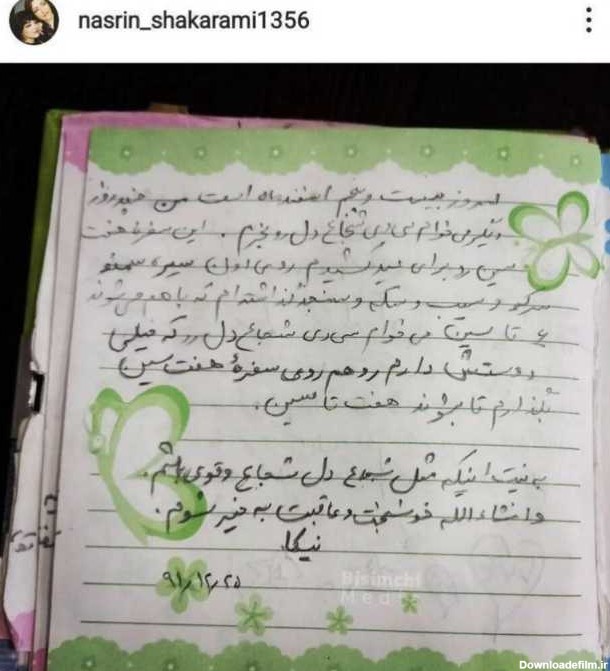 nasrin_shakarami1356
امروز بیست و پنجم اسفندماه است من چند روز
دیگر می خوام سی دی شجاع دل رو بخرم . این سفره هفت
سین رو برای عید کشیدم روی اون سیر، سمنو
سرکه و سیب و سکه و سنجد گذاشته ام که با هم می شوند
۶ تا سین می خوام سی دی شجاع دل رو که خیلی
دوستش دارم رو هم روی سفرهٔ هفت سین
بگذارم تا بشوند هفت تا سین .
به نیت اینکه مثل شجاع دل شجاع و قوی باشم .
و انشاءالله خوشبخت و عاقبت به خیر شوم .
نیکا
۹۱/۱۲/۲۵
Bisimchi
Media
Downloadefilm.ir